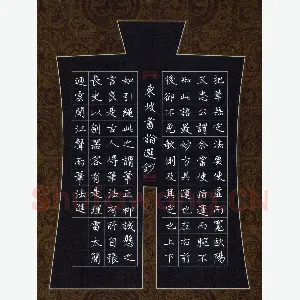 把筆無定法要使虛而寬歐陽
文忠公謂余當使指運而腕不
知此語最妙方其運也左右前
後卻不免欹側及其定也上下
東坡書論選鈔
如引繩此之謂筆正柳誠懸之
言良是古人得筆法有所自張
長史以劍器容有是理雷太簡
迺云聞江聲而筆法進